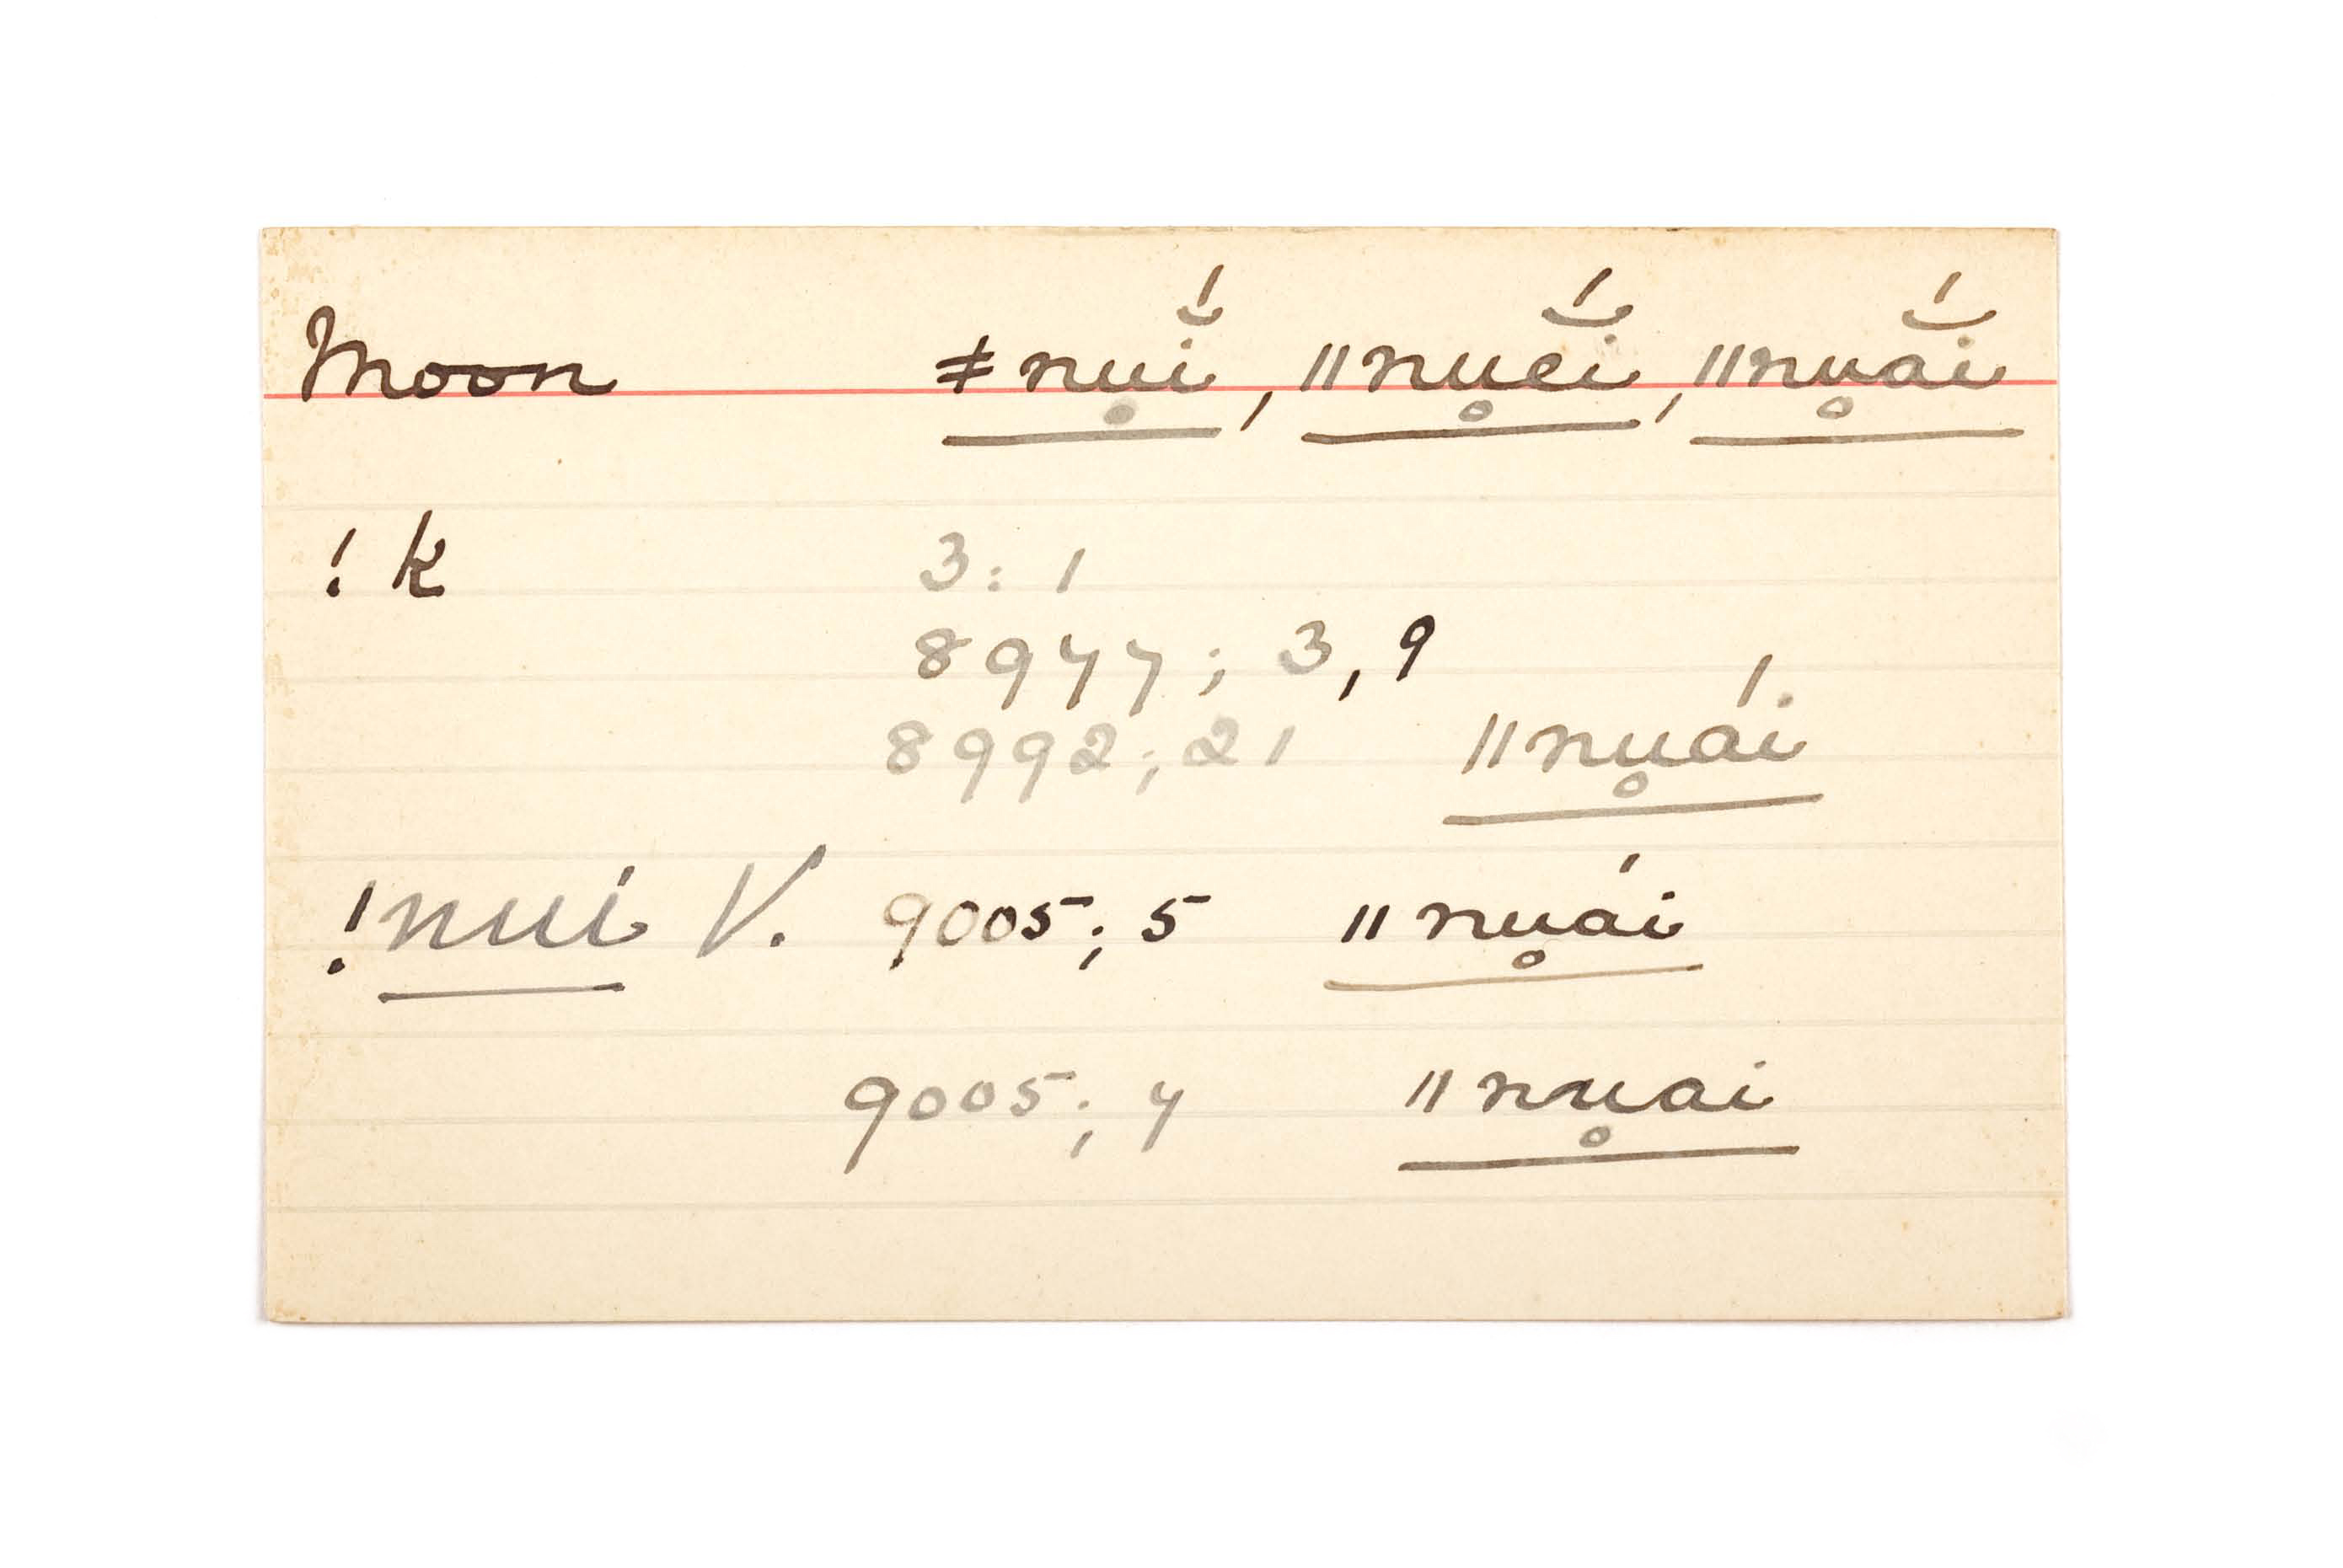 Moon ǂnu̥ĭ́, ǁnu̥ĕ́i, ǁnu̥ắi
! k 3: 1
8977; 3, 9
8992; 21 ǁnu̥ái
!nuí V. 9005; 5 ǁnu̥ái
9005; 7 ǁnu̥ai